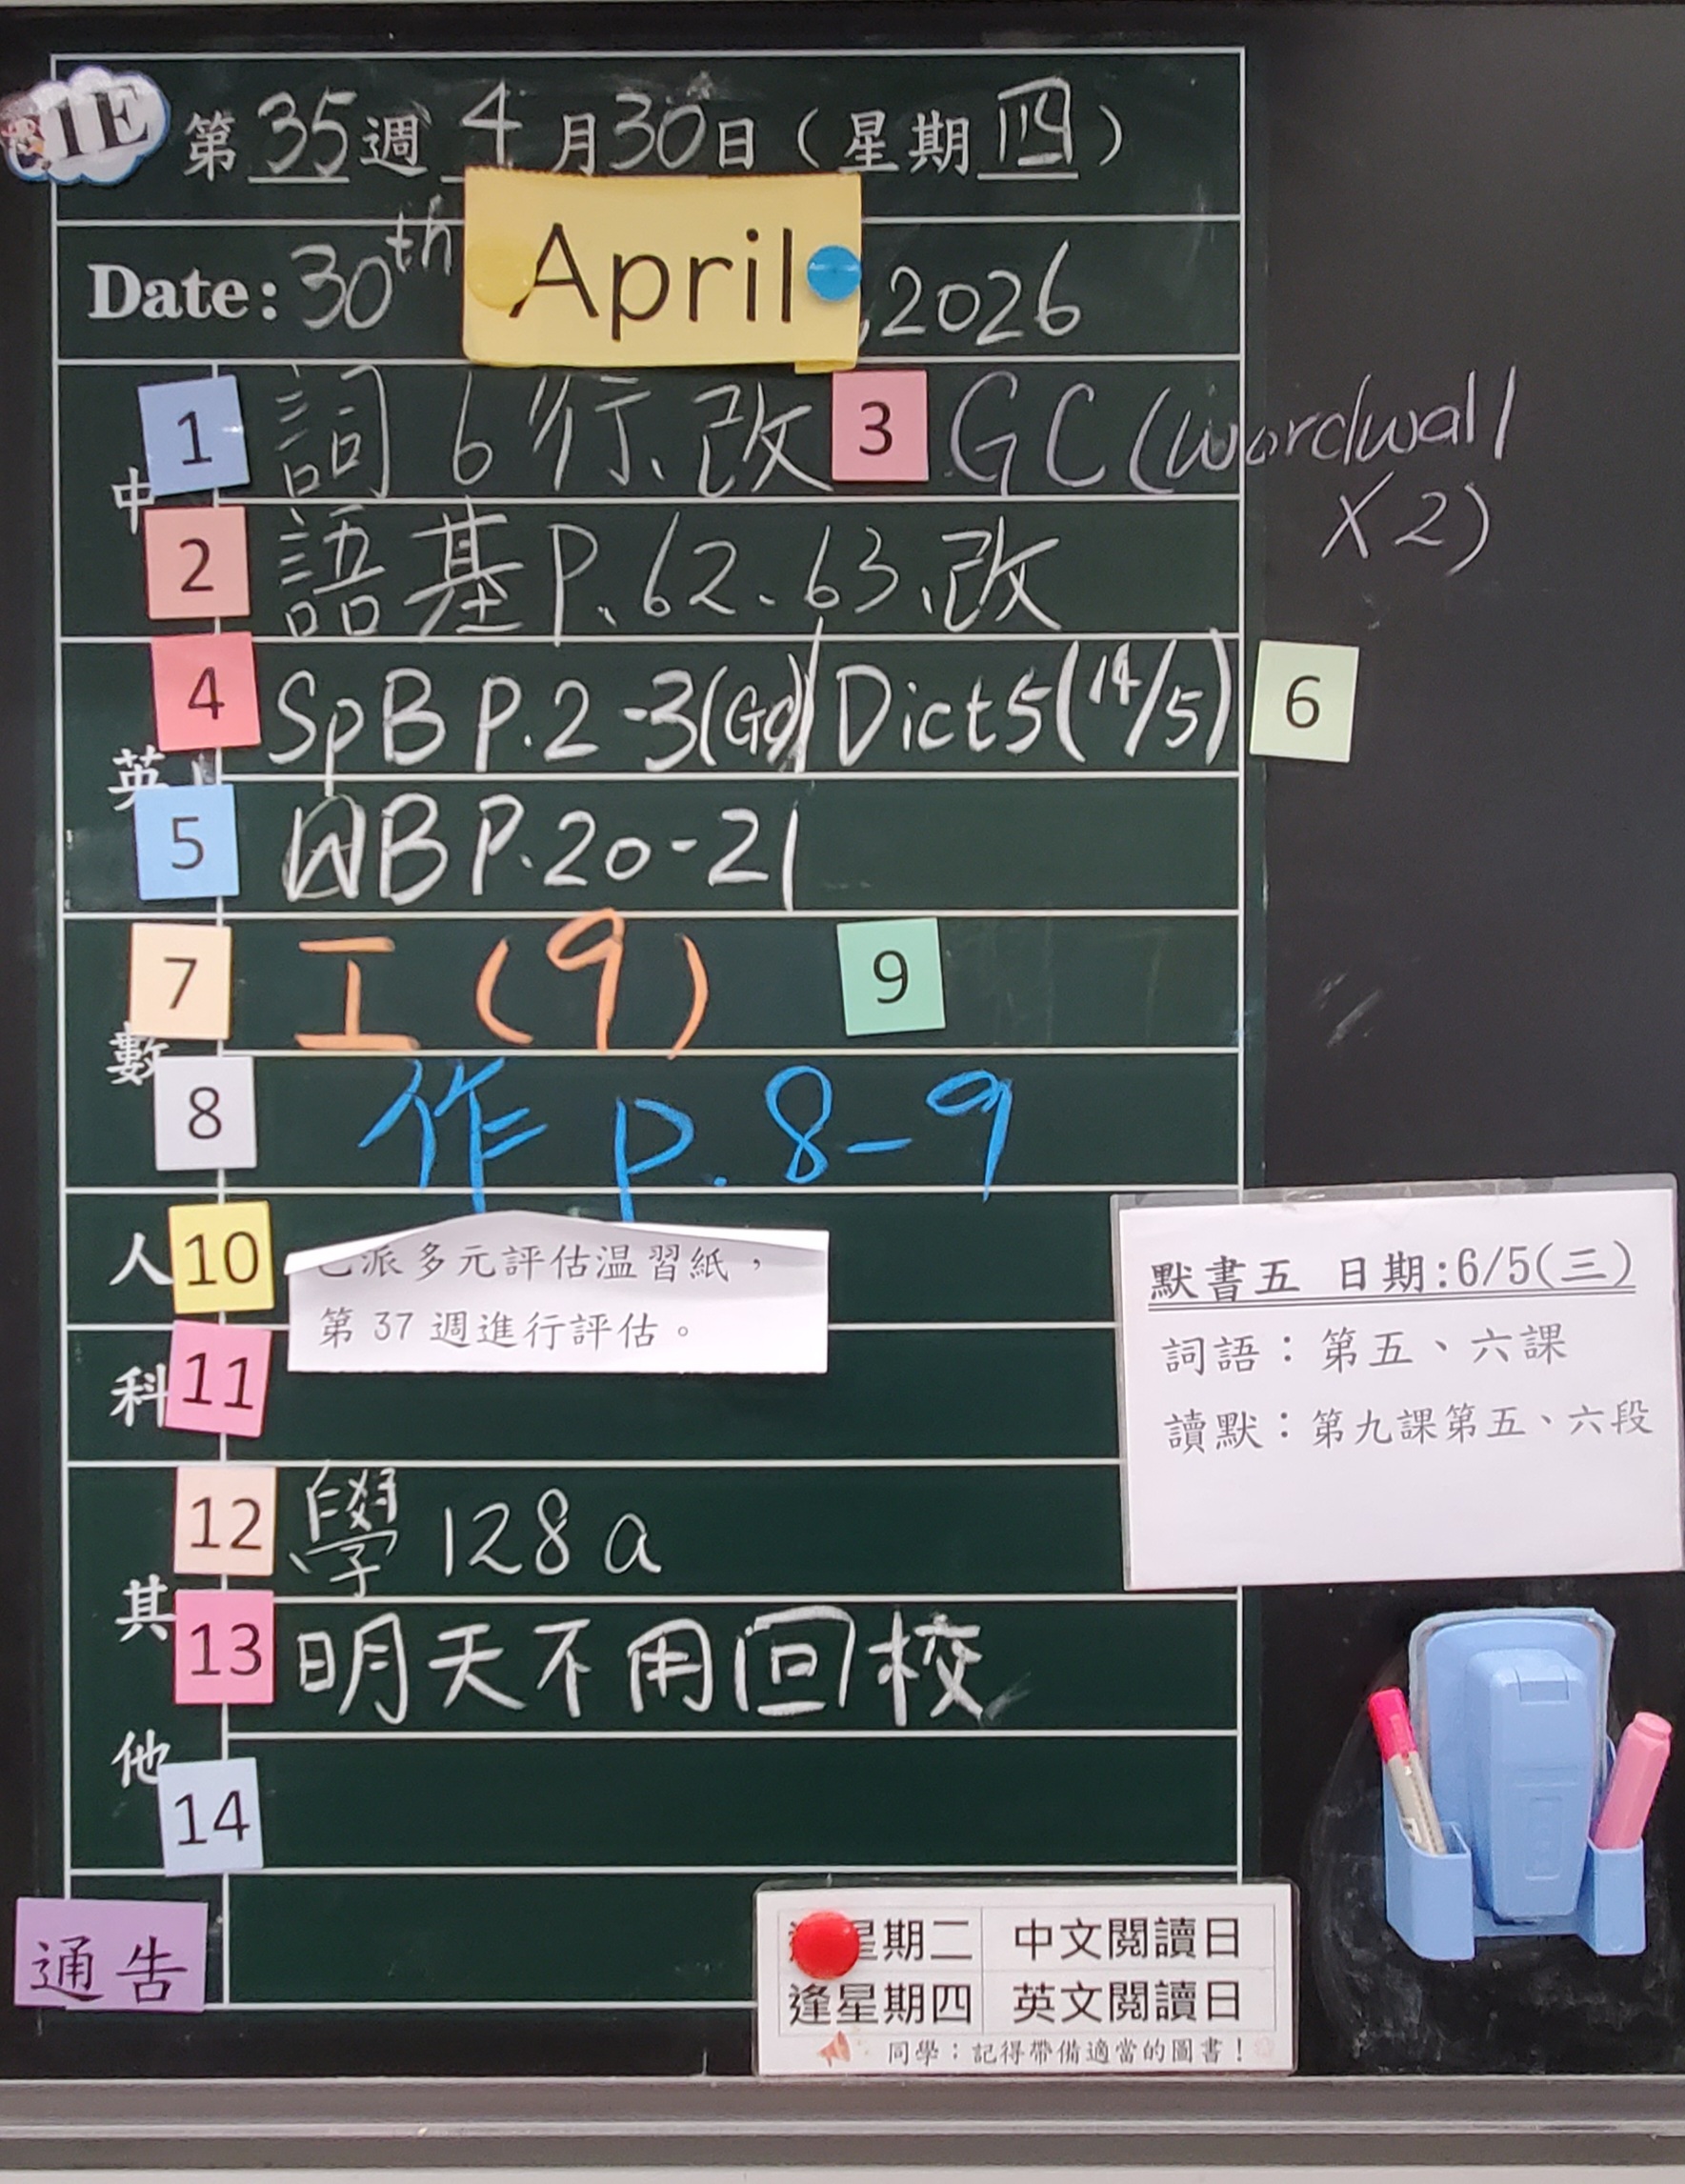 1E
第 35 週 4 月 30 日（星期 四）
Date: 30th April, 2026
中
1 詞 6 行、改 3 GC (wordwall
x 2)
2 語基 P. 62、63、改
英
4 SpB P.2-3(GC) Dict 5 (14/5) 6
5 WB P.20-21
數
7 工 (9) 9
8 作 P. 8-9
人 10 已派多元評估温習紙，
第 37 週進行評估。
科 11
其他
12 學 128 a
13 明天不用回校
14
通告
默書五 日期:6/5(三)
詞語：第五、六課
讀默：第九課第五、六段
星期二 中文閱讀日
逢星期四 英文閱讀日
同學：記得帶備適當的圖書！